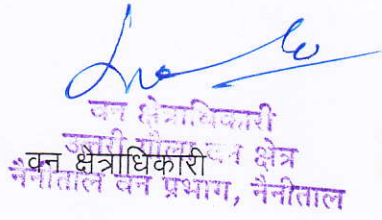 वन क्षेत्राधिकारी
उत्तरी गौला वन क्षेत्र
वन क्षेत्राधिकारी
नैनीताल वन प्रभाग, नैनीताल